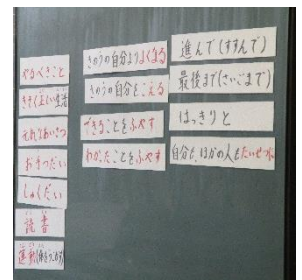 やるべきこと
きそく正しい生活
元気なあいさつ
おてつだい
しゅくだい
読書
運動(体をつかう)
きのうの自分よりよくなる
きのうの自分をこえる
できることをふやす
わかったことをふやす
進んで(すすんで)
最後まで(さいごまで)
はっきりと
自分も、ほかの人もたいせつに